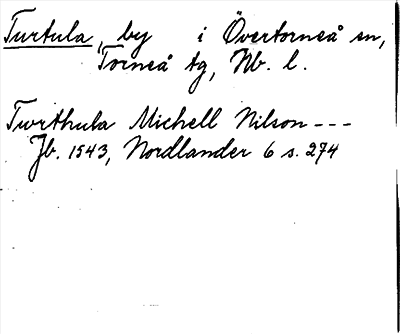 Turtula, by i Övertorneå sn,
Torneå tg, Nb. l.
Turthula Michell Nilson ---
Jb. 1543, Nordlander 6 s. 274